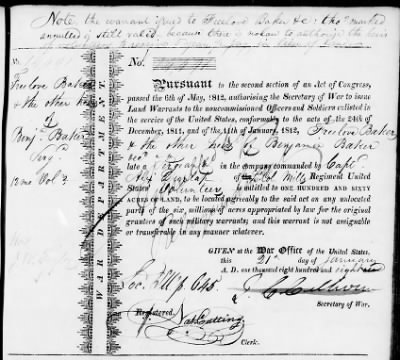 Note, the warrant issued to Freelove Baker &c: tho' marked
annulled is still valid, because there is no law to authorize the heirs
No.
Freelove Baker
& the other heirs
of
Benj. Baker
Serg.
12 mo Vol
WAR DEPARTMENT.
Pursuant to the second section of an Act of Congress,
passed the 6th of May, 1812, authorising the Secretary of War to issue
Land Warrants to the noncommissioned Officers and Soldiers enlisted
in the service of the United States, conformably to the acts of the 24th of
December, 1811, and of the 11th of January, 1812, Freelove Baker
& the other heirs of Benjamin Baker
late a Sergeant in the company commanded by Capt.
Regiment United
States' Volunteers is entitled to ONE HUNDRED AND SIXTY
ACRES OF LAND, to be located agreeably to the said act on any unlocated
party of the six millions of acres appropriated by law for the original
grantees of such military warrants; and this warrant is not assignable
or transferable in any manner whatever.
GIVEN at the War Office of the United States,
this 21st day of January
A. D. one thousand eight hundred and eighteen
J. C. Calhoun
Secretary of War.
Rec.
Registered,
Nat Cutting
Clerk.